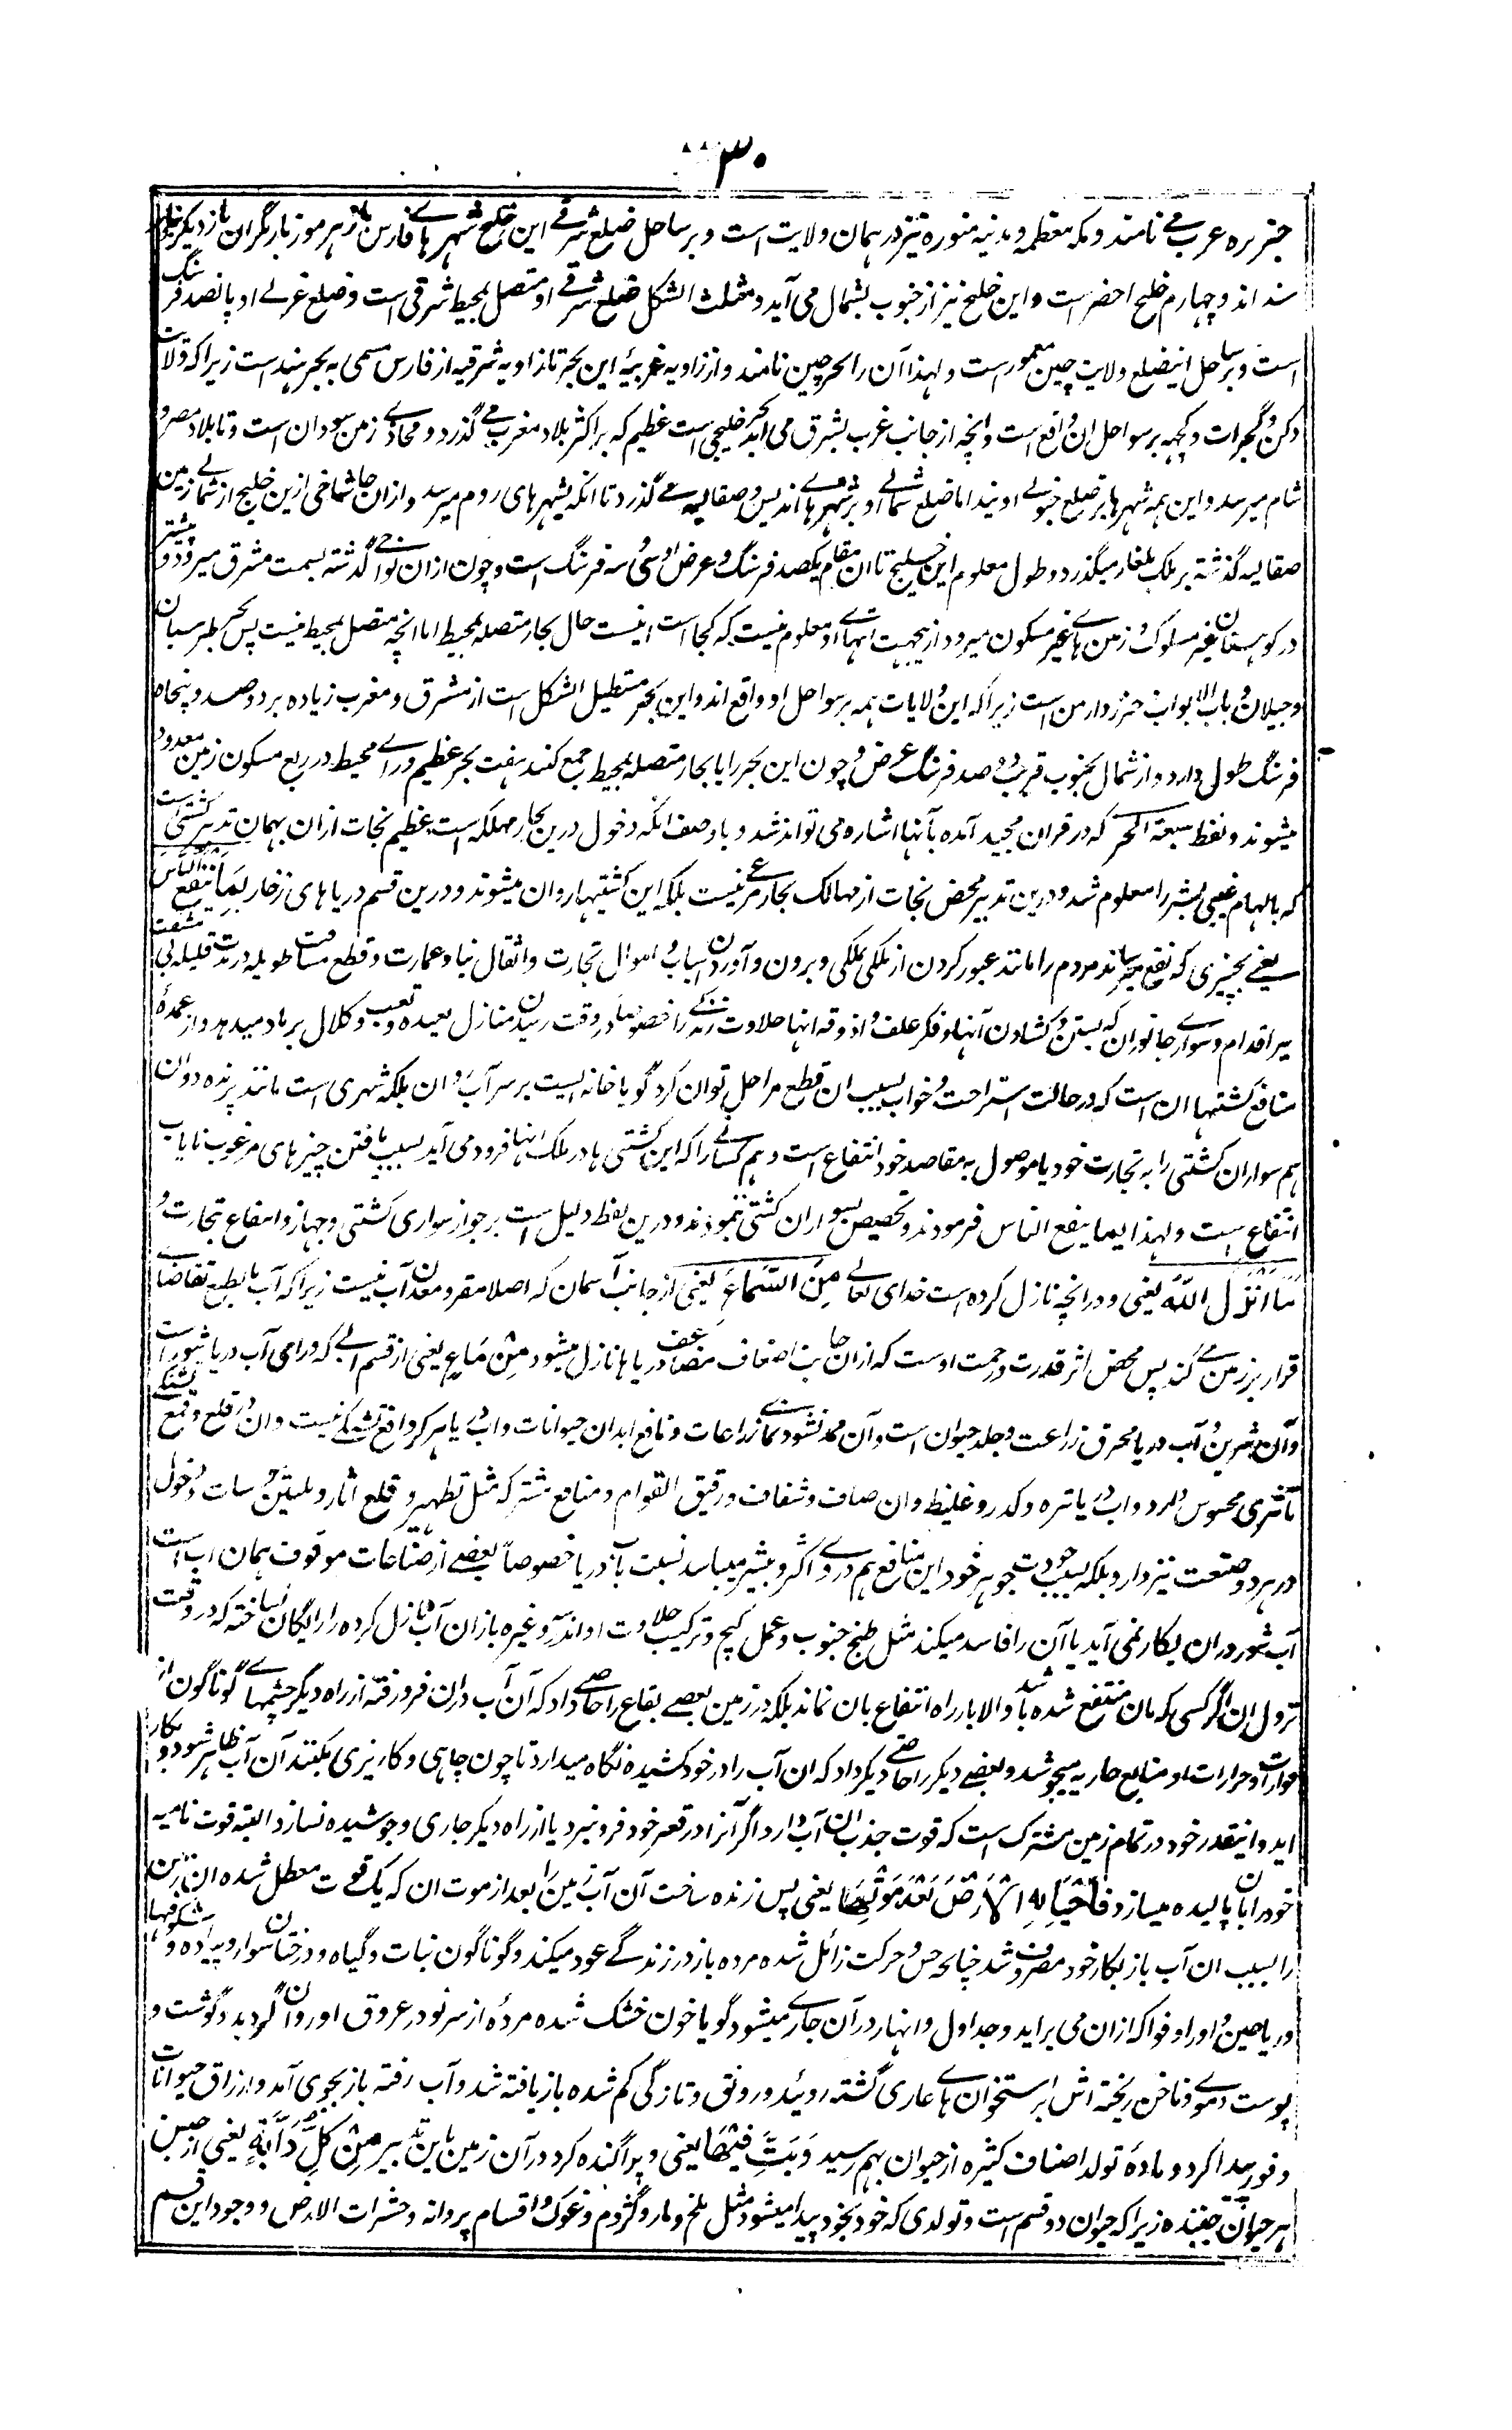 ۳۰
جزیره عرب مے نامند و مکه معظمه و مدینه منوره نیز در همان ولایت است و بر ساحل ضلع شرقے این خلیج شهرهاے فارس
اند و چهارم خلیج اخضر است و این خلیج نیز از جنوب بشمال می آید و مثلث الشکل ضلع شرقے او متصل بمحیط شرقی است و ضلع غربے او پانصد فرسنگ
است و بر ساحل اینضلع ولایت چین معمور است و لهذا آن را بحر چین نامند و از زاویه غربیۀ این بحر تا زاویه شرقیه از فارس مسمی به بحر هند است زیرا که ولایت
دکن و گجرات و کچهه بر سواحل ان واقع است و انچه از جانب غرب بشرق می آید بحر خلیجی است عظیم که بر اکثر بلاد مغرب مے گذرد و محاذے زمین سودان است و تا بلاد مصر و
شام میرسد و این همه شهرها بر ضلع جنوبے اویند اما ضلع شمالے او بر شهرهاے اندلس و صقالیه مے گذرد تا انکه بشهرهای روم میرسد و ازان جا شاخی ازین خلیج از شمالے زمین
صقالیه گذشته بر ملک بلغار میگذرد و طول معلوم این خلیج تا ان مقام یکصد فرسنگ و عرض او سی و سه فرسنگ است و چون ازان نواحے گذشته بسمت مشرق میرود و پیشتر
در کوهستان غیر مسلوک و زمین هاے غیر مسکون میرود ازینجهت انتهاے او معلوم نیست که کجا است اینست حال بحار متصله بمحیط اما انچه متصل بمحیط نیست پس بحر طبرستان
و جیلان و باب الابواب خزر و ارمن است زیرا که این ولایات همه بر سواحل او واقع اند و این بحر مستطیل الشکل است از مشرق و مغرب زیاده بر دو صد و پنجاه
فرسنگ طول دارد و از شمال بجنوب قریب دو صد فرسنگ عرض و چون این بحر را با بحار متصله بمحیط جمع کنند هفت بحر عظیم وراے محیط در ربع مسکون زمین معدود
میشوند و لفظ سبعة ابحر که در قران مجید آمده بآنها اشاره می تواند شد و با وصف انکه دخول درین بحار مهلکه است عظیم نجات ازان بهمان تدبیر کشتی است
که بالهام غیبی بشر را معلوم شد و درین تدبیر محض نجات از مهالک بحار مرعی نیست بلکه این کشتیها روان میشوند و درین قسم دریاهای زخار بِمَا يَنْفَعُ النَّاسَ
یعنے بچیزی که نفع میرساند مردم را مانند عبور کردن از ملکی بملکی و بردن و آوردن اسباب و اموال تجارت و اثقال بنا و عمارت و قطع مسافت طویله در مدت قلیله بی مشقت
سیر اقدام و سوارے جانوران که بستن و کشادن آنها و فکر علف و اذوقه انها حلاوت زندگے را خصوصاً در وقت رسیدن منازل بعیده و تعب و کلال برباد میدهد و از عمدۀ
منافع کشتیها ان است که در حالت استراحت و خواب بسبب ان قطع مراحل توان کرد گویا خانه ایست بر سر آب روان بلکه شهری است مانند پرنده دوان
هم سواران کشتی را به تجارت خود یا موصول به مقاصد خود انتفاع است و هم کسانے را که این کشتی ها در ملک انها فرود می آید بسبب یافتن چیزهای مرغوب نایاب
انتفاع است و لهذا بما ینفع الناس فرمودند و تخصیص بسواران کشتی ننمودند و درین لفظ دلیل است بر جواز سواری کشتی و جهاز و انتفاع تجارت و
مَا أَنْزَلَ اللّٰهُ یعنی و در انچه نازل کرده است خدای تعالے مِنَ السَّمَاءِ یعنی از جانب آسمان که اصلا مقر و معدن آب نیست زیرا که آب بالطبع تقاضاے
قرار بر زمین مے کند پس محض اثر قدرت و رحمت اوست که ازان جانب اضعاف مضاعف دریاها نازل میشود مِنْ مَاءٍ یعنی از قسم آبے که ورای آب دریا شور است
و آن شیرین و آب دریا محرق زراعت و جلد حیوان است و آن ممد نشو و نماے زراعات و نافع ابدان حیوانات و اب دریا هرگز دافع تشنگے نیست و ان در قلع و قمع تشنگے
تاثیری محسوس دارد و اب دریا تیره و کدر و غلیظ و ان صاف و شفاف و رقیق القوام و منافع مشترکه مثل تطهیر و قلع اثار و تلیین یابسات و دخول
در هر دو صنعت نیز دارد بلکه بسبب جودت جوهر خود این منافع هم در وے اکثر و بیشتر میباشد نسبت بآب دریا خصوصاً بعضے از صناعات موقوف بهمان اب است
آب شور دران بکار نمی آید یا آن را فاسد میکند مثل طبخ جنوب و عمل گچ و ترکیب حلاوت او اندر و غیره باز ان آب نازل کرده را رایگان نساخته که در وقت
نزول ان اگر کسی که بان منتفع شده باشد و الا باز راه انتفاع بان نماند بلکه در زمین بعضے بقاع را خاصیتے داد که آن آب دران فرو رفته از راه دیگر چشمهاے گوناگون از
حوارات و حرارات او منابع جاریه میجوشد و بعضے دیگر را خاصیتے دیگر داد که ان آب را در خود کشیده نگاه میدارد تا چون چاهی و کاریزی بکنند آن آب ظاهر شود و بکار
اید و اینقدر خود در تمام زمین مشترک است که قوت جذب ان آب دارد اگر آنرا در قعر خود فرو نبرد یا از راه دیگر جاری و جوشیده نسازد البته قوت نامیه
خود را بان بالیده میسازد فَأَحْيَا بِهِ الْأَرْضَ بَعْدَ مَوْتِهَا یعنی پس زنده ساخت آن آب زمین را بعد از موت ان که یک قوت معطل شده ان زمین
را بسبب ان آب باز بکار خود مصروف شد چنانچه حس و حرکت زائل شده مرده باز در زندگے عود میکند و گوناگون نبات و گیاه و درختان سوار و پیاده و شگوفها
و ریاحین و اوراد و فواکه ازان می براید و جداول و انهار در آن جارے میشود گویا خون خشک شده مردۀ از سر نو در عروق او روان گردید و گوشت و
پوست و موے و ناخن ریخته اش بر استخوان هاے عاری گشته روئید و رونق و تازگی گم شده باز یافته شد و آب رفته باز بجوی آمد و ارزاق حیوانات
وفور پیدا کرد و مادۀ تولد اصناف کثیره از حیوان بهم رسید وَبَثَّ فِيهَا یعنی و پراگنده کرد در آن زمین باین تدبیر مِنْ كُلِّ دَابَّةٍ یعنی از جنس
هر حیوان جنبنده زیرا که حیوان دو قسم است و تولدی که خود بخود پیدا میشود مثل ملخ و مار و گژدم و غوک و اقسام پروانه و حشرات الارض و وجود این قسم